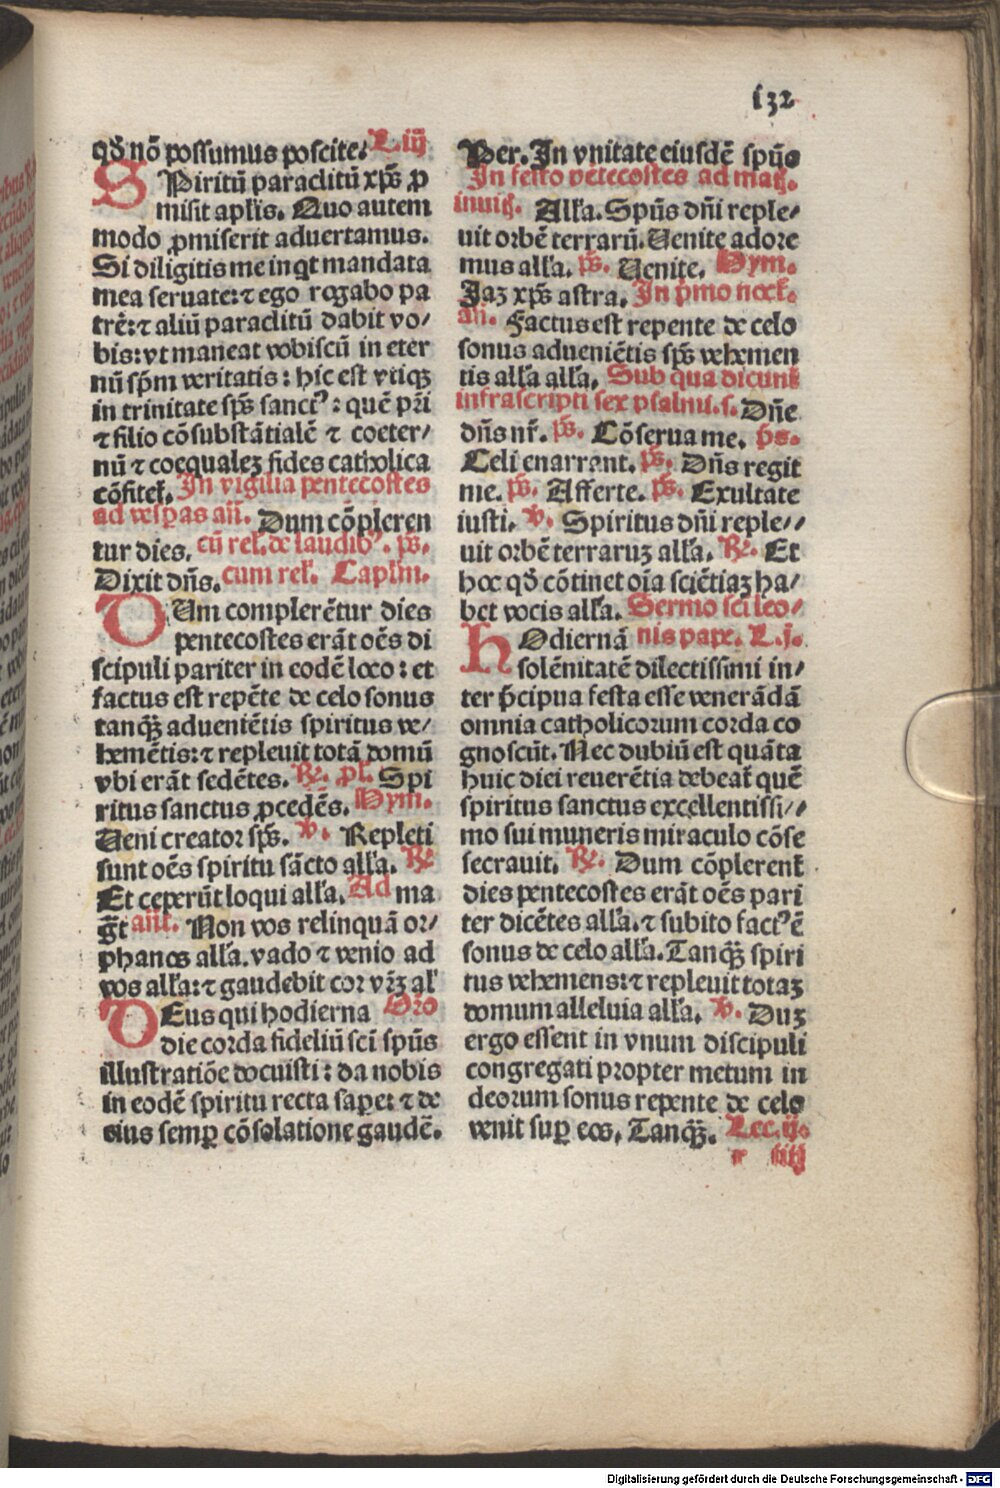 132
qđ nō possumus poscite. L. iij
SPiritū paraclitū xp̄s ꝓ
misit apl̄is. Quo autem
modo ꝓmiserit aduertamus.
Si diligitis me inqt mandata
mea seruate: ⁊ ego rogabo pa
trē: ⁊ aliū paraclitū dabit vo/
bis: vt maneat vobiscū in eter
nū sp̄m veritatis: hic est vtiqꝫ
in trinitate sp̄s sanctꝰ: quē pr̄i
⁊ filio cōsubstātialē ⁊ coeter/
nū ⁊ coequalez fides catholica
cōfitet᷑. In vigilia pentecostes
ad vesꝑas añ. Dum cōpleren
tur dies. cū rel. de laudibꝰ. ps̄.
Dixit dn̄s. cum rel᷑. Capl̄m.
DUm complerētur dies
pentecostes erāt oēs di
scipuli pariter in codē loco: et
factus est repēte de celo sonus
tanqꝫ̄ adueniētis spiritus ve/
hemētis: ⁊ repleuit totā domū
vbi erāt sedētes. R̷. pl᷑. Spi
ritus sanctus ꝓcedēs. Hym.
Ueni creator sp̄s. v̷. Repleti
sunt oēs spiritu sācto all̄a. R̷
Et ceperūt loqui all̄a. Ad ma
g̃t añt. Non vos relinquā or/
phanos all̄a. vado ⁊ venio ad
vos all̄a: ⁊ gaudebit cor vr̄ꝫ al᷑
DEus qui hodierna Oro
die corda fideliū sc̄i spūs
illustratiōe docuisti: da nobis
in eodē spiritu recta sapere: ⁊ de
eius semꝑ cōsolatione gaudē.
Per. In vnitate eiusdē spūs
In festo pētecostes ad mat᷑.
inuit᷑. All̄a. Spūs dn̄i reple/
uit orbē terrarū. Uenite adore
mus all̄a. ps̄. Uenite. Hym.
Jaꝫ xp̄s astra. In p̄mo noct᷑.
añ. Factus est repente de celo
sonus adueniētis sp̄s vehemen
tis all̄a all̄a. Sub qua dicunt᷑
infrascripti sex psalmi. s. Dn̄e
dn̄s nr̄. ps̄. Cōserua me. ps̄.
Celi enarrant. ps̄. Dn̄s regit
me. ps̄. Afferte. ps̄. Exultate
iusti. v̷. Spiritus dn̄i reple//
uit orbē terraruꝫ all̄a. R̷. Et
hoc qđ cōtinet oīa sciētiaꝫ ha/
bet vocis all̄a. Sermo sc̄i leo/
HOdiernā nis pape. L. j.
solēnitatē dilectissimi in/
ter p̄cipua festa esse venerādā
omnia catholicorum corda co
gnoscūt. Nec dubiū est quāta
huic diei reuerētia debeat᷑ quē
spiritus sanctus excellentissi//
mo sui muneris miraculo cōse
secrauit. R̷. Dum cōplerent᷑
dies pentecostes erāt oēs pari
ter dicētes all̄a. ⁊ subito factꝰ ē
sonus de celo all̄a. Tanqꝫ̄ spiri
tus vehemens: ⁊ repleuit totaꝫ
domum alleluia all̄a. v̷. Duꝫ
ergo essent in vnum discipuli
congregati propter metum iu
deorum sonus repente de celo
venit suꝑ eos. Tanqꝫ̄. Lec. ij.
Digitalisierung gefördert durch die Deutsche Forschungsgemeinschaft - DFG